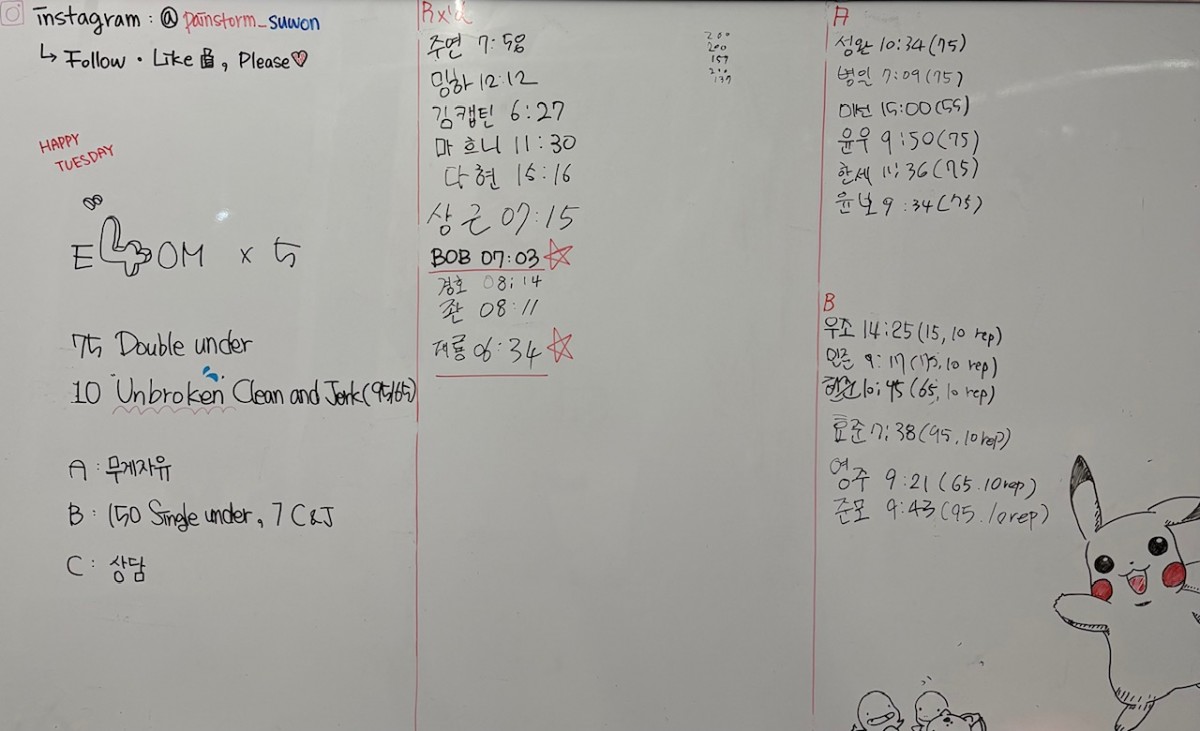 instagram : @painstorm_suwon
↳ Follow · Like 👍, Please♡
HAPPY
TUESDAY
E4OM x 5
75 Double under
10 "Unbroken" Clean and Jerk (95/65)
A : 무게자유
B : 150 Single under, 7 C&J
C : 상담
Rx'd
주연 7:58
밍하 12:12
김캡틴 6:27
마흐니 11:30
다현 15:16
상근 07:15
BOB 07:03 ☆
경호 08:14
좐 08:11
재룡 06:34 ☆
200
200
157
200
137
A
성완 10:34 (75)
병일 7:09 (75)
미선 15:00 (55)
윤우 9:50 (75)
한세 11:36 (75)
윤보 9:34 (75)
B
우조 14:25 (15, 10 rep)
민준 9:17 (75, 10 rep)
10:45 (65, 10 rep)
효준 7:38 (95, 10 rep)
영주 9:21 (65. 10 rep)
준모 9:43 (95. 10 rep)